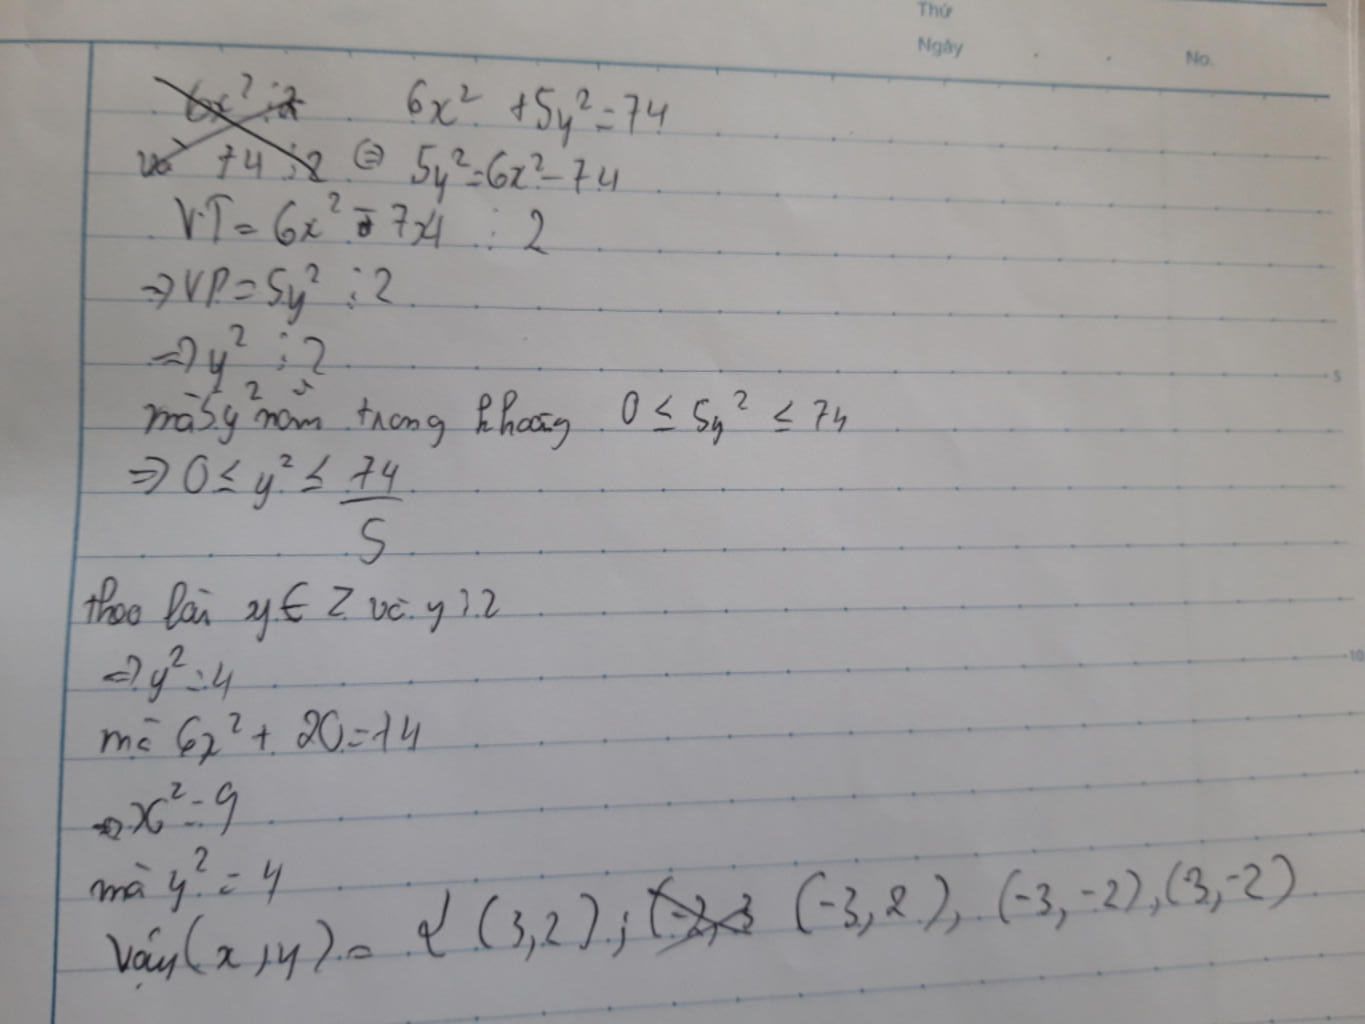 Thứ
Ngày
No.
6x² ⋮ 2 6x² + 5y² = 74
và 74 ⋮ 2 ⇔ 5y² = 6x² - 74
VT = 6x² - 74 ⋮ 2
⇒ VP = 5y² ⋮ 2
⇒ y² ⋮ 2
mà 5y² nằm trong khoảng 0 ≤ 5y² ≤ 74
⇒ 0 ≤ y² ≤ 74/5
5
theo bài y ∈ Z và y ⋮ 2
⇒ y² = 4
mà 6x² + 20 = 74
10
⇒ x² = 9
mà y² = 4
Vậy (x, y) = { (3, 2); (-2, 3 (-3, 2), (-3, -2), (3, -2)